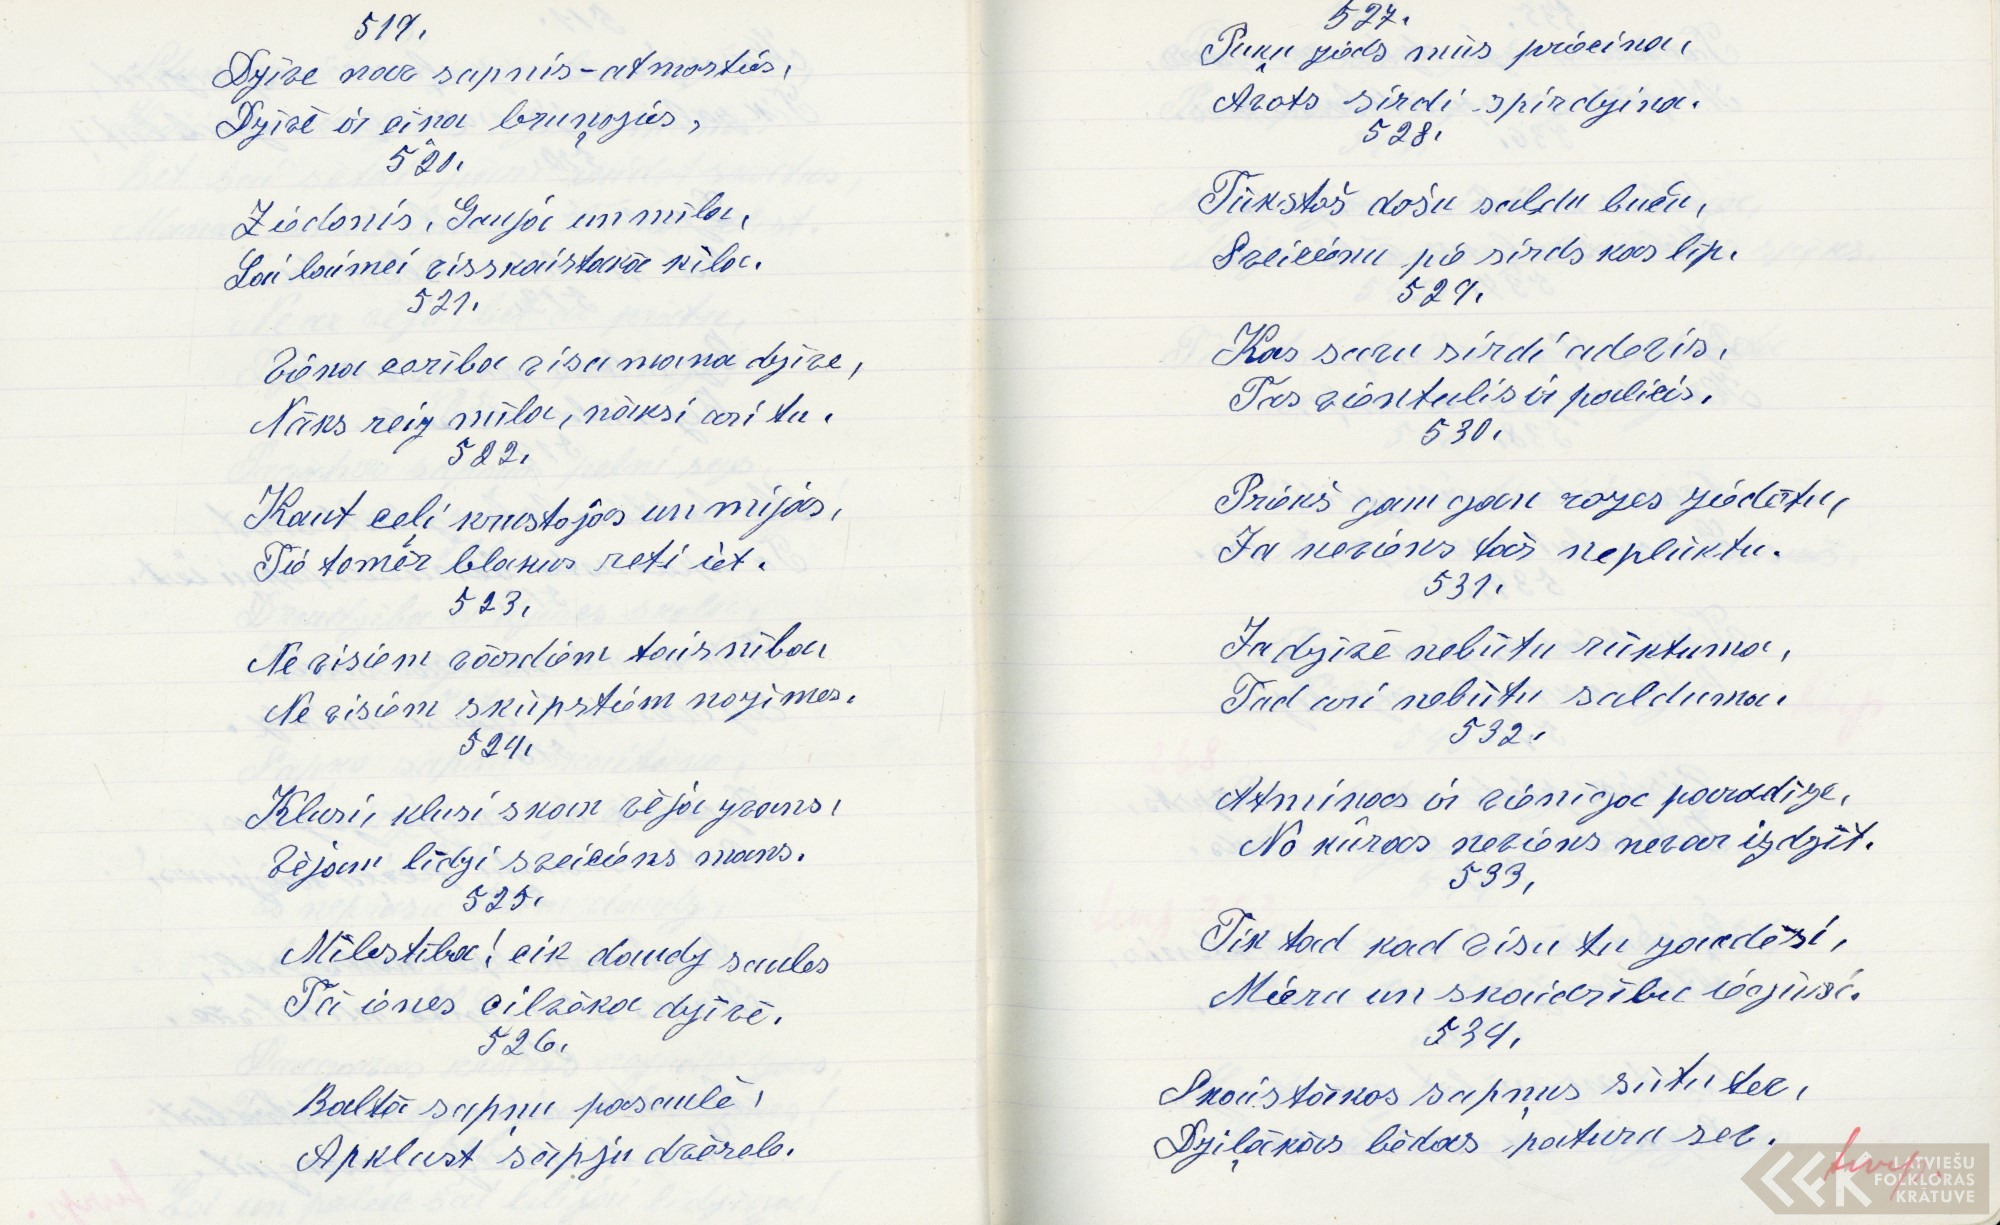 519.
Dzīve nav sapnis - atmostās,
Dzīvē ir cīņa bruņojās,
520.
Ziedonis, Gauja un mīla,
Lai laimei visskaistākā ķīla.
521.
Viena cerība visa mana dzīve,
Nāks reiz mīla, nāksi arī tu.
522.
Kaut ceļi krustojās un mijās,
Tie tomēr blakus reti iet.
523.
Ne visiem vārdiem taisnība
Ne visiem skūpstiem nozīmes.
524.
Klusi, klusi skan vēja zvans,
Vējam līdzi sveiciens mans.
525.
Mīlestība! cik daudz saules
Tā ienes cilvēka dzīvē.
526.
Baltā sapņu pasaulē,
Apklust sāpju dvēsele.
527.
Puķu zieds mūs priecina,
Avots sirdi spirdzina.
528.
Tūkstoš došu saldu buču,
Sveicienu pie sirds kas līp.
529.
Kas savu sirdi adevis,
Tas vientulis ir palicis.
530.
Priekš gam gan rozes ziedētu,
Ja neviens tās neplūktu.
531.
Ja dzīvē nebūtu rūktuma,
Tad arī nebūtu salduma.
532.
Atmiņas ir vienīgā paradīze,
No kūras neviens nevar izdzīt.
533.
Tik tad kad visu tu zaudēsi,
Mieru un skaidrību iegūsi.
534.
Skaistākos sapņus sūtu tev,
Dziļākās bēdas paturu sev.
turp.
LATVIEŠU
FOLKLORAS
KRĀTUVE